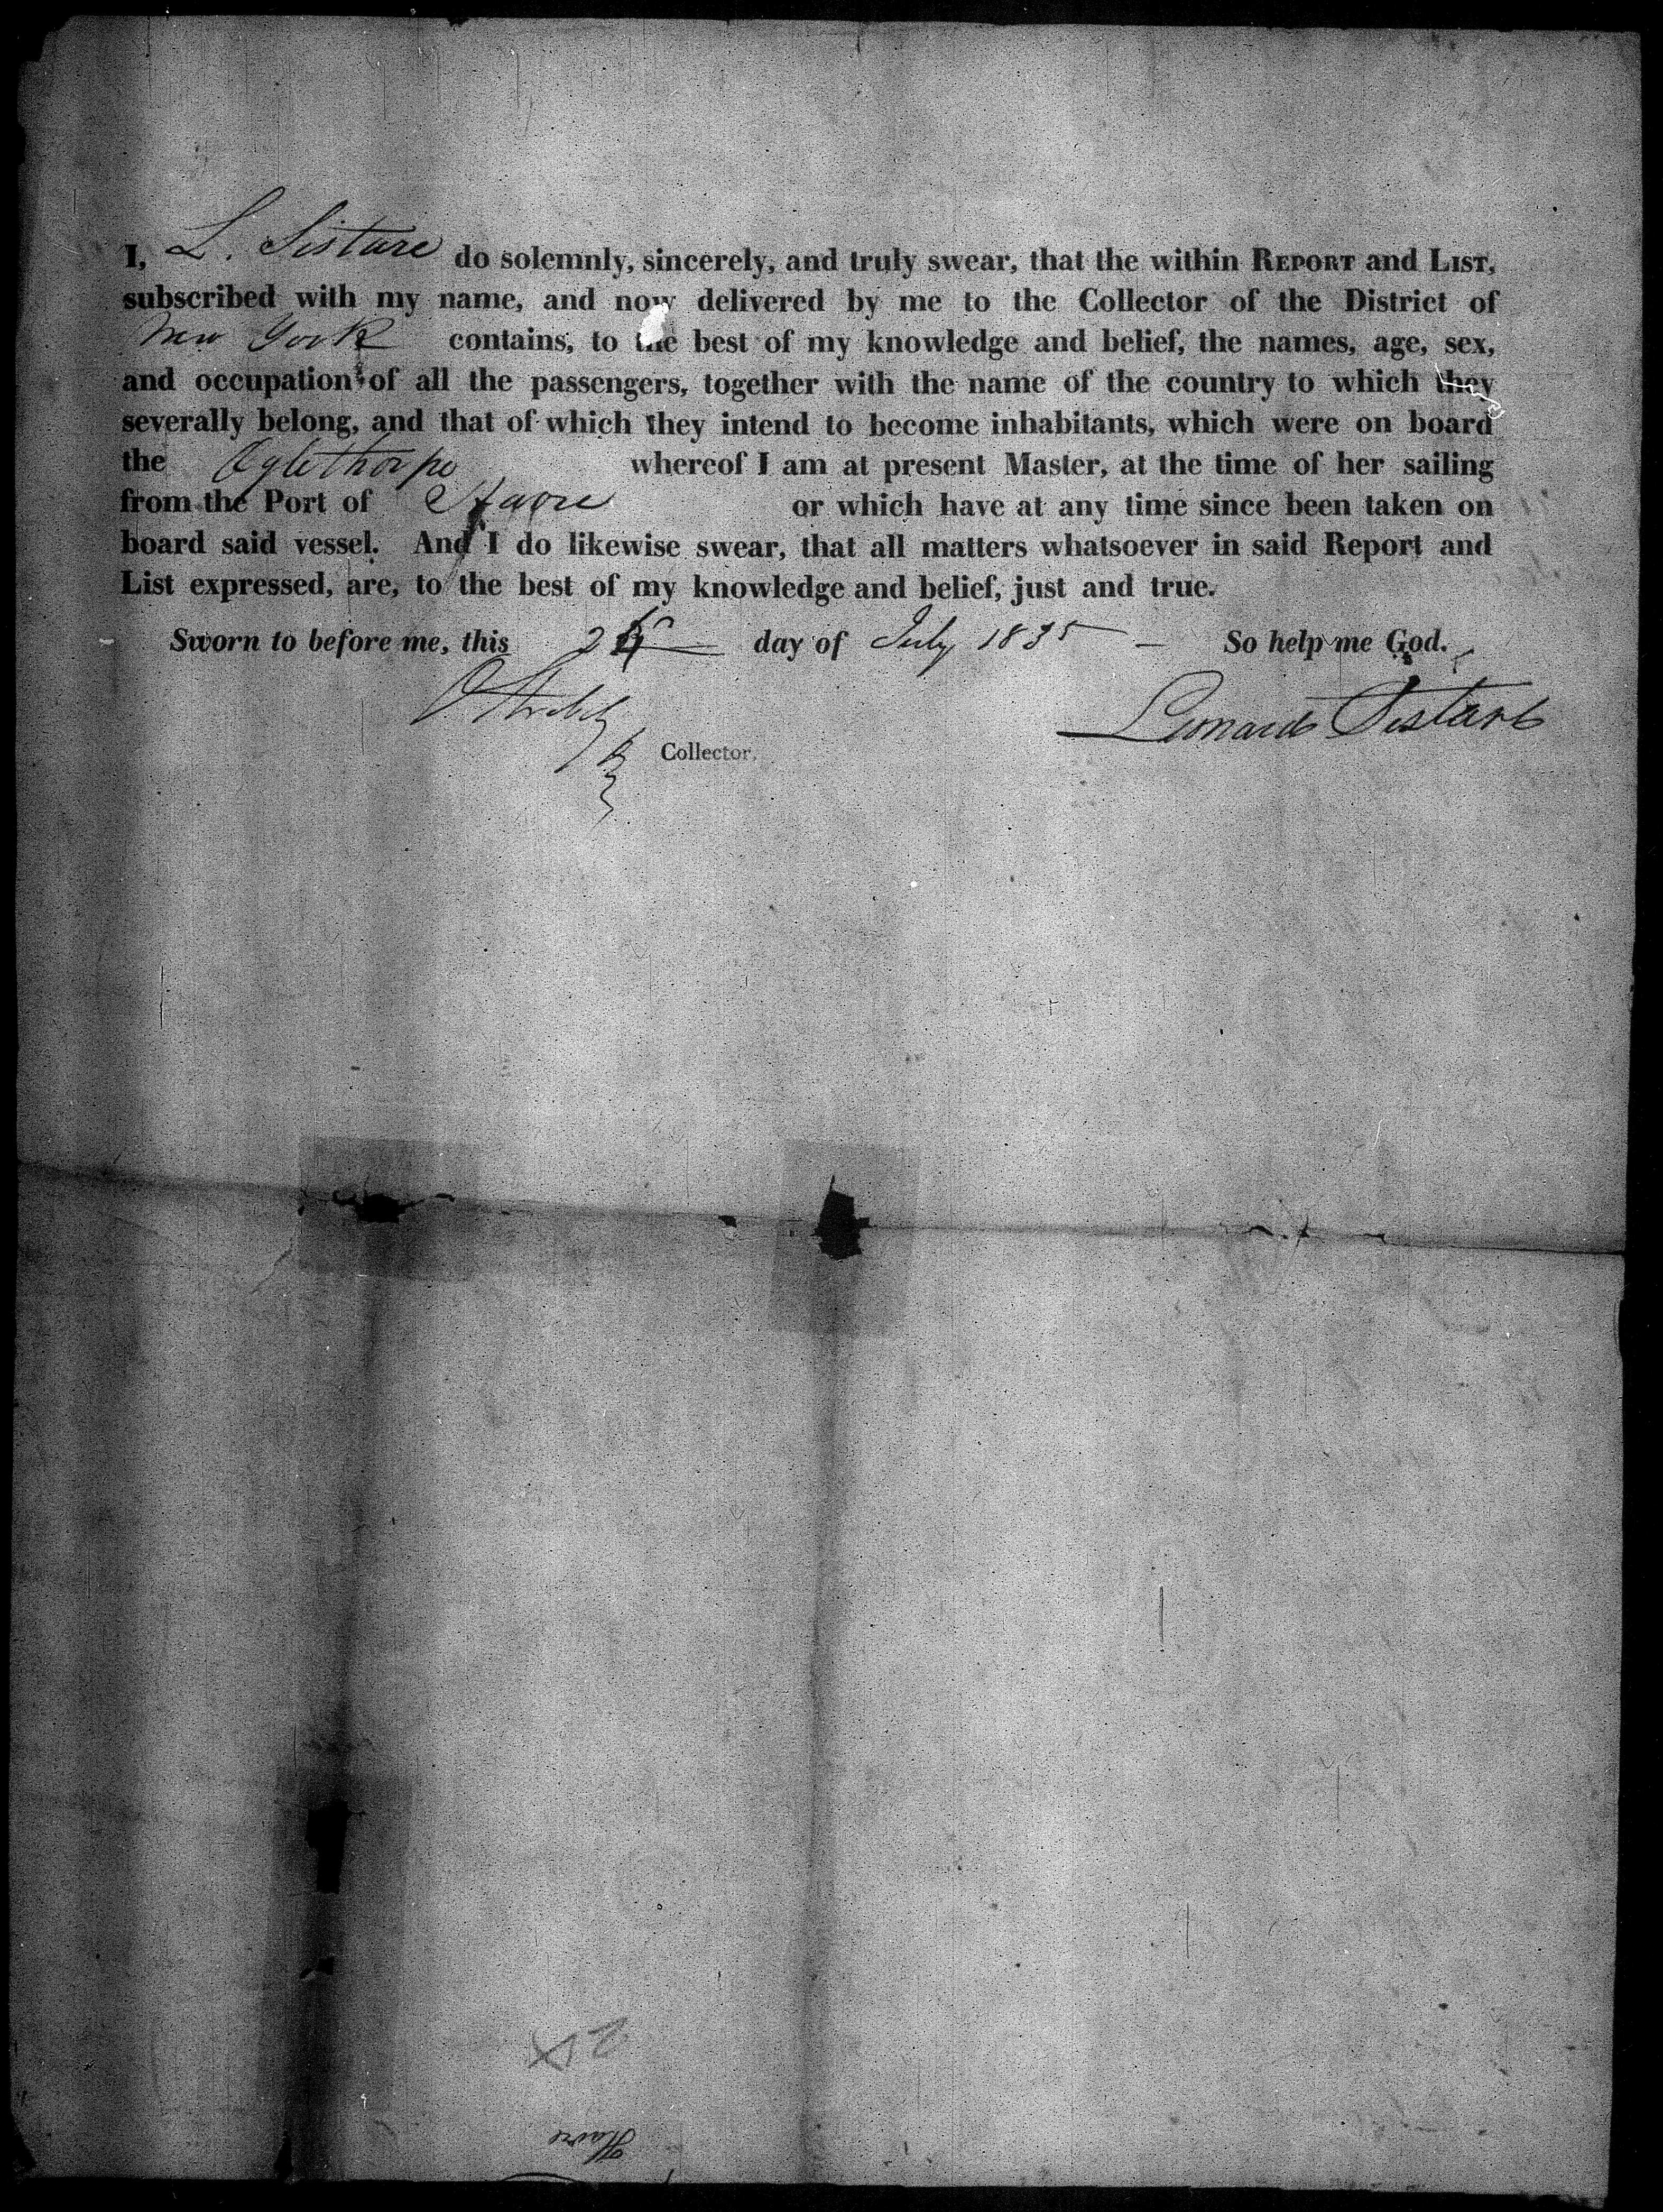 I, L. Sistare do solemnly, sincerely, and truly swear, that the within REPORT and LIST,
subscribed with my name, and now delivered by me to the Collector of the District of
New York contains, to the best of my knowledge and belief, the names, age, sex,
and occupation of all the passengers, together with the name of the country to which they
severally belong, and that of which they intend to become inhabitants, which were on board
the Oglethorpe whereof I am at present Master, at the time of her sailing
from the Port of Havre or which have at any time since been taken on
board said vessel. And I do likewise swear, that all matters whatsoever in said Report and
List expressed, are, to the best of my knowledge and belief, just and true.
Sworn to before me, this day of July 1835 — So help me God.
Leonard Sistare
Collector.
Havre